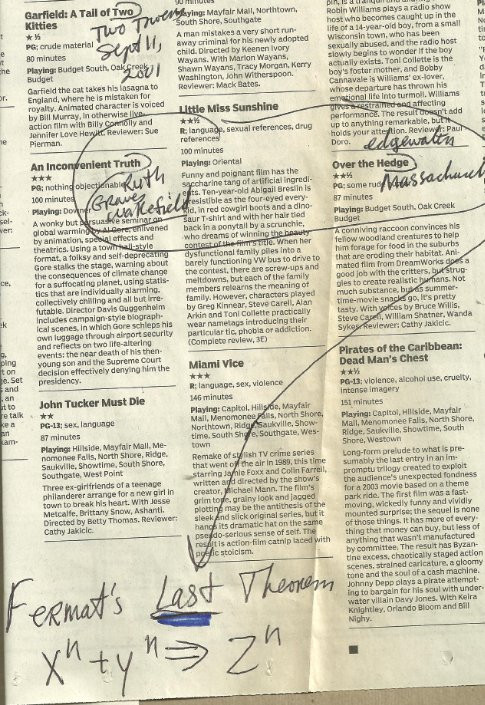 Garfield: A Tail of Two
Kitties
★ ½
PG: crude material
Playing: Budget South, Oak Creek
Budget
Garfield the cat takes his lasagna to
England, where he is mistaken for
royalty. Animated character is voiced
by Bill Murray, in otherwise live-
action film with Billy Connolly and
Jennifer Love Hewitt. Reviewer: Sue
Pierman.
Two Towers
Sept 11,
2001
An Inconvenient Truth
★★★
PG; nothing objectionable
100 minutes
Playing: Downer
A wonky but persuasive seminar on
global warming by Al Gore, enlivened
by animation, special effects and
theatrics. Using a town hall-style
format, a folksy and self-deprecating
Gore stalks the stage, warning about
the consequences of climate change
for a suffocating planet, using statis-
tics that are individually alarming,
collectively chilling and all but irre-
futable. Director Davis Guggenheim
includes campaign-style biograph-
ical scenes, in which Gore schleps his
own luggage through airport security
and reflects on two life-altering
events: the near death of his then-
young son and the Supreme Court
decision effectively denying him the
presidency.
Ruth
Graves
Wakefield
John Tucker Must Die
★★
PG-13; sex, language
87 minutes
Playing: Hillside, Mayfair Mall, Me-
nomonee Falls, North Shore, Ridge,
Saukville, Showtime, South Shore,
Southgate, West Point
Three ex-girlfriends of a teenage
philanderer arrange for a new girl in
town to break his heart. With Jesse
Metcalfe, Brittany Snow, Ashanti.
Directed by Betty Thomas. Reviewer:
Cathy Jakicic.
90 minutes
Playing: Mayfair Mall, Northtown,
South Shore, Southgate
A man mistakes a very short run-
away criminal for his newly adopted
child. Directed by Keenen Ivory
Wayans. With Marlon Wayans,
Shawn Wayans, Tracy Morgen, Kerry
Washington, John Witherspoon.
Reviewer: Mack Bates.
Little Miss Sunshine
★★½
R; language, sexual references, drug
references
100 minutes
Playing: Oriental
Funny and poignant film has the
saccharine tang of artificial ingredi-
ents. Ten-year-old Abigail Breslin is
irresistible as the four-eyed
kid, in red cowboy boots and a dino-
saur T-shirt and with her hair tied
back in a ponytail by a scrunchie,
who dreams of winning the beauty
contest of the film's title. When her
dysfunctional family piles into a
barely functioning VW bus to drive to
the contest, there are screw-ups and
meltdowns, but each of the family
members relearns the meaning of
family. However, characters played
by Greg Kinnear, Steve Carell, Alan
Arkin and Toni Collette practically
wear nametags introducing their
particular tic, phobia or addiction.
(Complete review, 3E)
Miami Vice
★★★
R: language, sex, violence
146 minutes
Playing: Capitol, Hillside, Mayfair
Mall, Menomonee Falls, North Shore,
Northtown, Ridge, Saukville, Show-
time, South Shore, Southgate, Wes-
town
Remake of stylish TV crime series
that went off the air in 1989, this time
starring Jamie Foxx and Colin Farrell,
written and directed by the show's
creator, Michael Mann. The film's
grim tone, grainy look and jagged
plotting may be the antithesis of the
sleek and slick original series, but it
hangs its dramatic hat on the same
pseudo-serious sense of self. The
result is action-film catnip laced with
poetic stoicism.
Robin Williams plays a radio show
host who becomes caught up in the
life of a 14-year-old boy, from a small
Wisconsin town, who has been
sexually abused, and the radio host
slowly begins to wonder if the boy
actually exists. Toni Collette is the
boy's foster mother, and Bobby
Cannavale is Williams' ex-lover,
whose departure has thrown his
emotional life into turmoil. Williams
gives a restrained and affecting
performance. The result doesn't add
up to anything remarkable, but it
holds your attention. Reviewer: Paul
Doro.
edgewater
Over the Hedge
★★½
PG: some rude
87 minutes
Playing: Budget South, Oak Creek
Budget
A conniving raccoon convinces his
fellow woodland creatures to help
him forage for food in the suburbs
that are eroding their habitat. Ani-
mated film from DreamWorks does a
good job with the critters, but strug-
gles to create realistic humans. Not
much substance, but as summer-
time-movie snacks go, it's pretty
tasty. With voices by Bruce Willis,
Steve Carell, William Shatner, Wanda
Sykes. Reviewer: Cathy Jakicic.
Massachus
Pirates of the Caribbean:
Dead Man's Chest
★★½
PG-13; violence, alcohol use, cruelty,
intense imagery
151 minutes
Playing: Capitol, Hillside, Mayfair
Mall, Menomonee Falls, North Shore,
Ridge, Saukville, Showtime, South
Shore, Westown
Long-form prelude to what is pre-
sumably the last entry in an im-
promptu trilogy created to exploit
the audience's unexpected fondness
for a 2003 movie based on a theme
park ride. The first film was a fast-
moving, wickedly funny and vividly
mounted surprise; the sequel is none
of those things. It has more of every-
thing that money can buy, but less of
anything that wasn't manufactured
by committee. The result has Byzan-
tine excess, chaotically staged action
scenes, strained caricature, a gloomy
tone and the soul of a cash machine.
Johnny Depp plays a pirate attempt-
ing to bargain for his soul with under-
water villain Davy Jones. With Keira
Knightley, Orlando Bloom and Bill
Nighy.
Fermat's Last Theorem
Xⁿ + yⁿ ⇒ Zⁿ